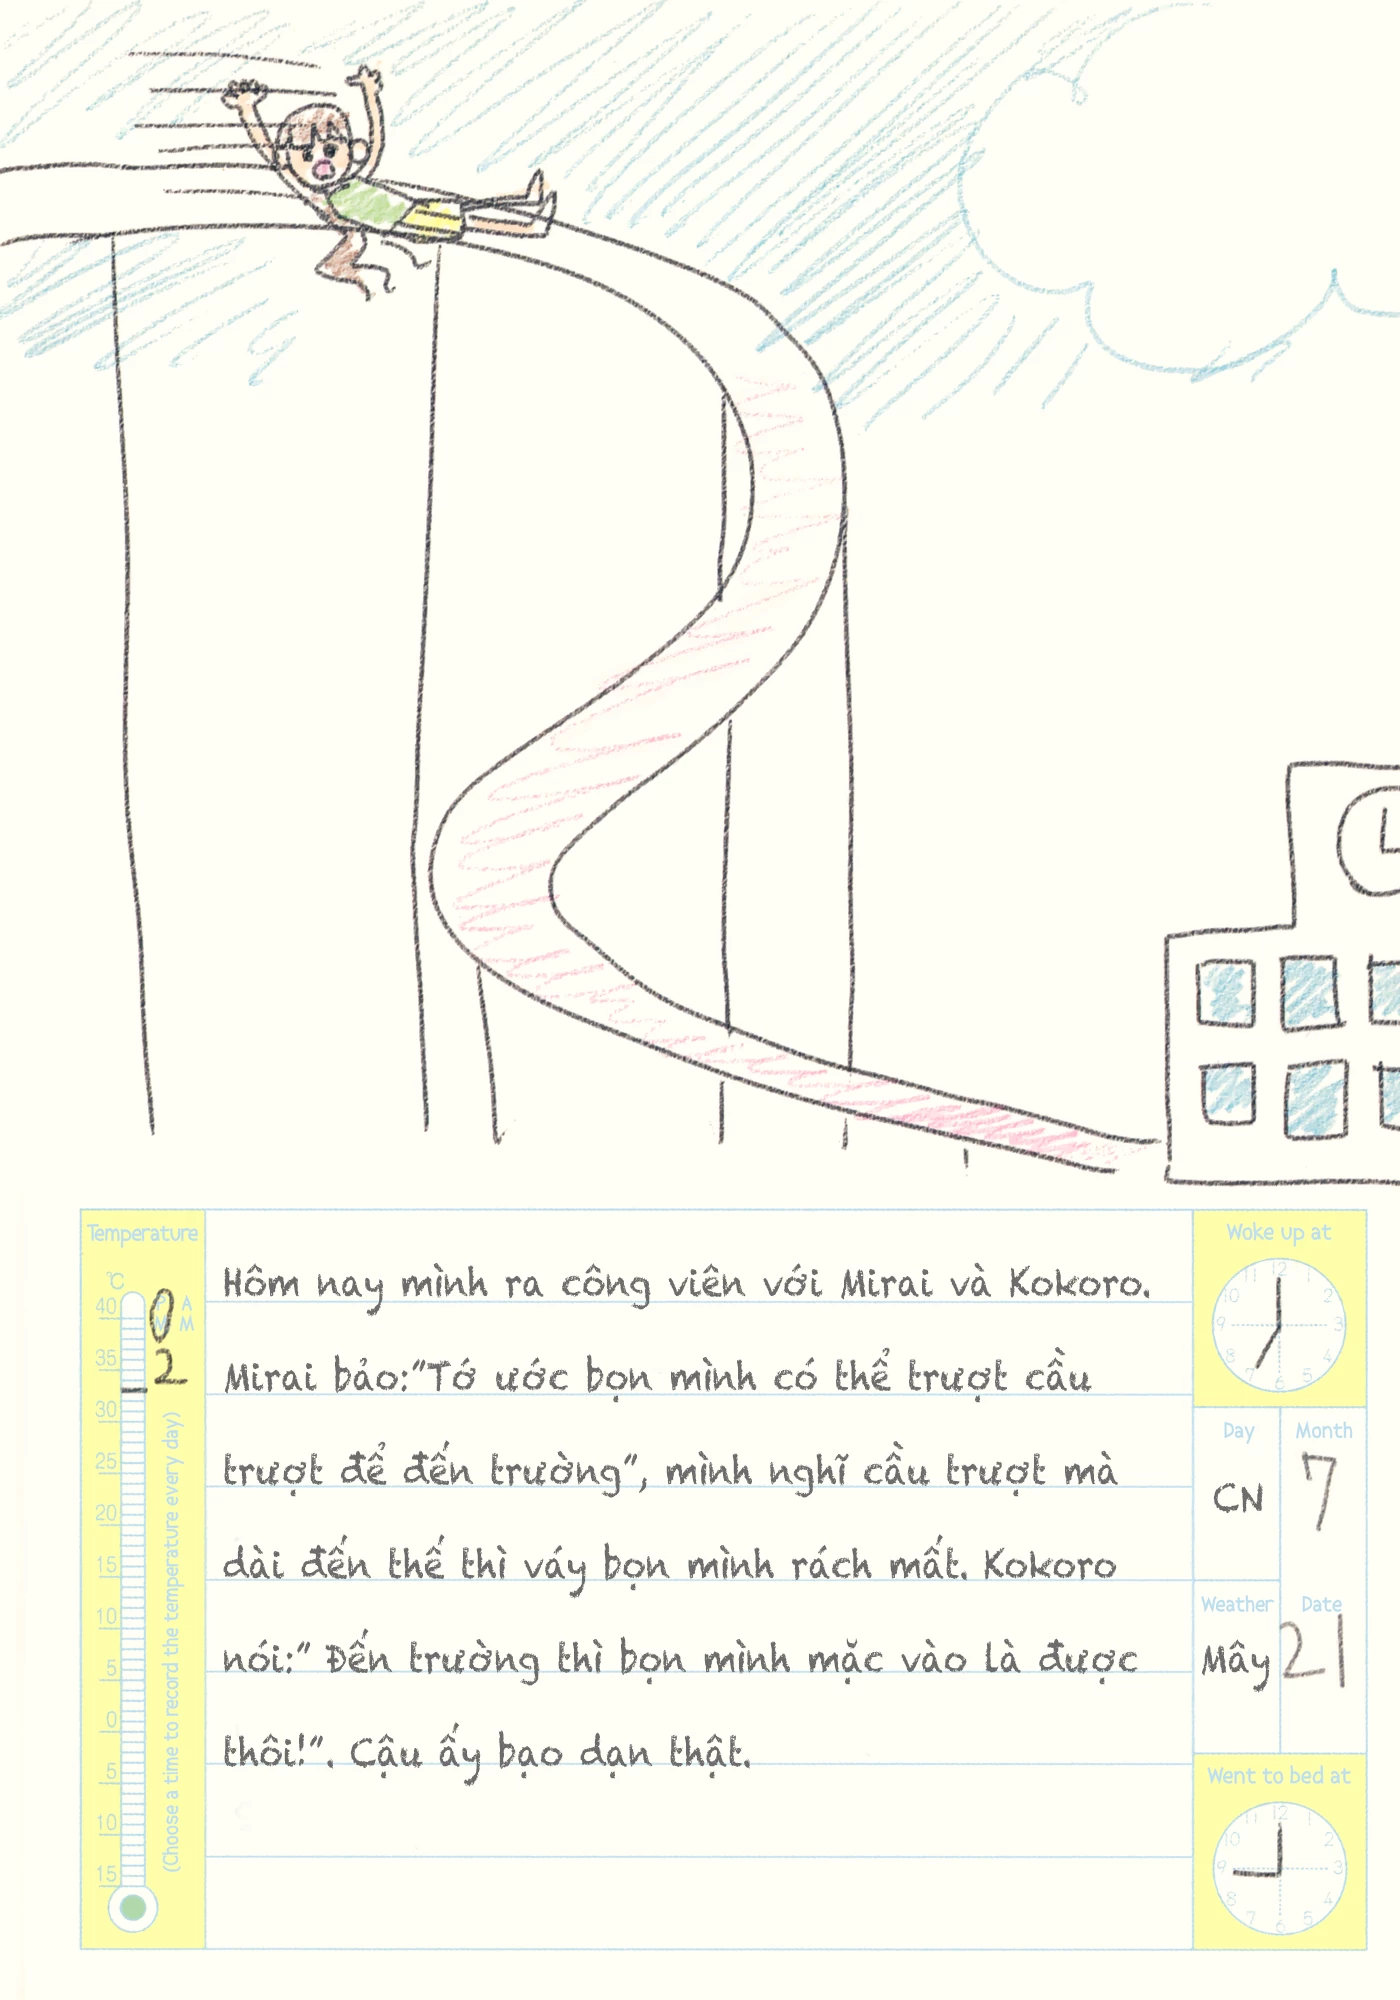 Temperature
℃
40
35
30
25
20
15
10
5
0
5
10
15
A
M
0
2
(Choose a time to record the temperature every day)
Hôm nay mình ra công viên với Mirai và Kokoro.
Mirai bảo:"Tớ ước bọn mình có thể trượt cầu
trượt để đến trường", mình nghĩ cầu trượt mà
dài đến thế thì váy bọn mình rách mất. Kokoro
nói:" Đến trường thì bọn mình mặc vào là được
thôi!". Cậu ấy bạo dạn thật.
Woke up at
12
1
2
3
5
6
7
8
9
10
11
Day
Month
CN
7
Weather
Date
Mây
21
Went to bed at
12
1
2
3
4
5
6
7
8
9
10
11